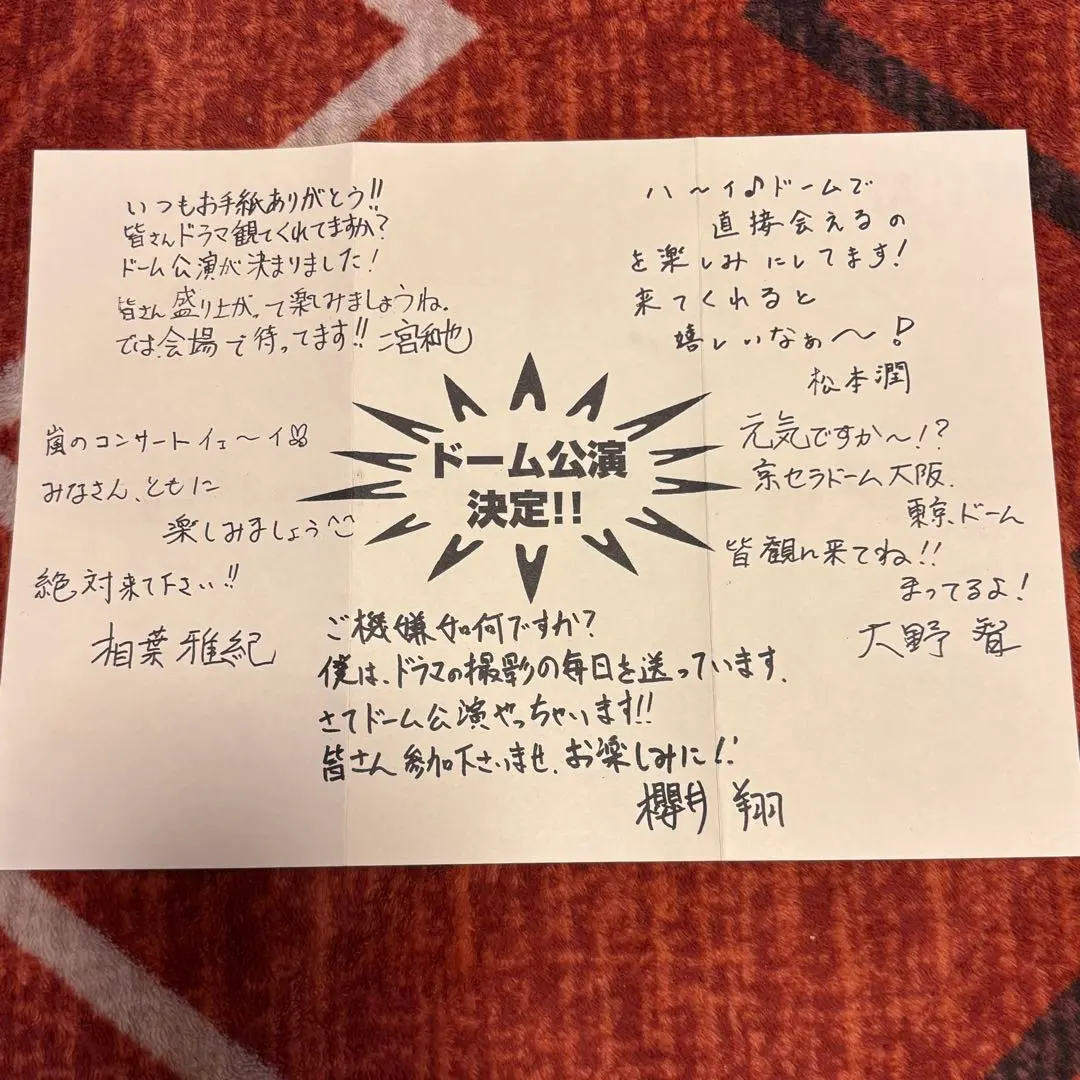 いつもお手紙ありがとう!!
皆さんドラマ観てくれてますか?
ドーム公演が決まりました!
皆さん盛り上がって楽しみましょうね.
では、会場で待ってます!! 二宮和也
ハ〜イ♪ドームで
直接会えるの
を楽しみにしてます!
来てくれると
嬉しいなぁ〜!
松本潤
嵐のコンサートイェ〜イ
みなさん、ともに
楽しみましょう^^
絶対来て下さい!!
相葉雅紀
ドーム公演
決定!!
元気ですか〜!?
京セラドーム大阪.
東京ドーム
皆観に来てね!!
まってるよ!
大野智
ご機嫌如何ですか?
僕は、ドラマの撮影の毎日を送っています.
さてドーム公演やっちゃいます!!
皆さん参加下さいませ.お楽しみに!!
櫻井翔